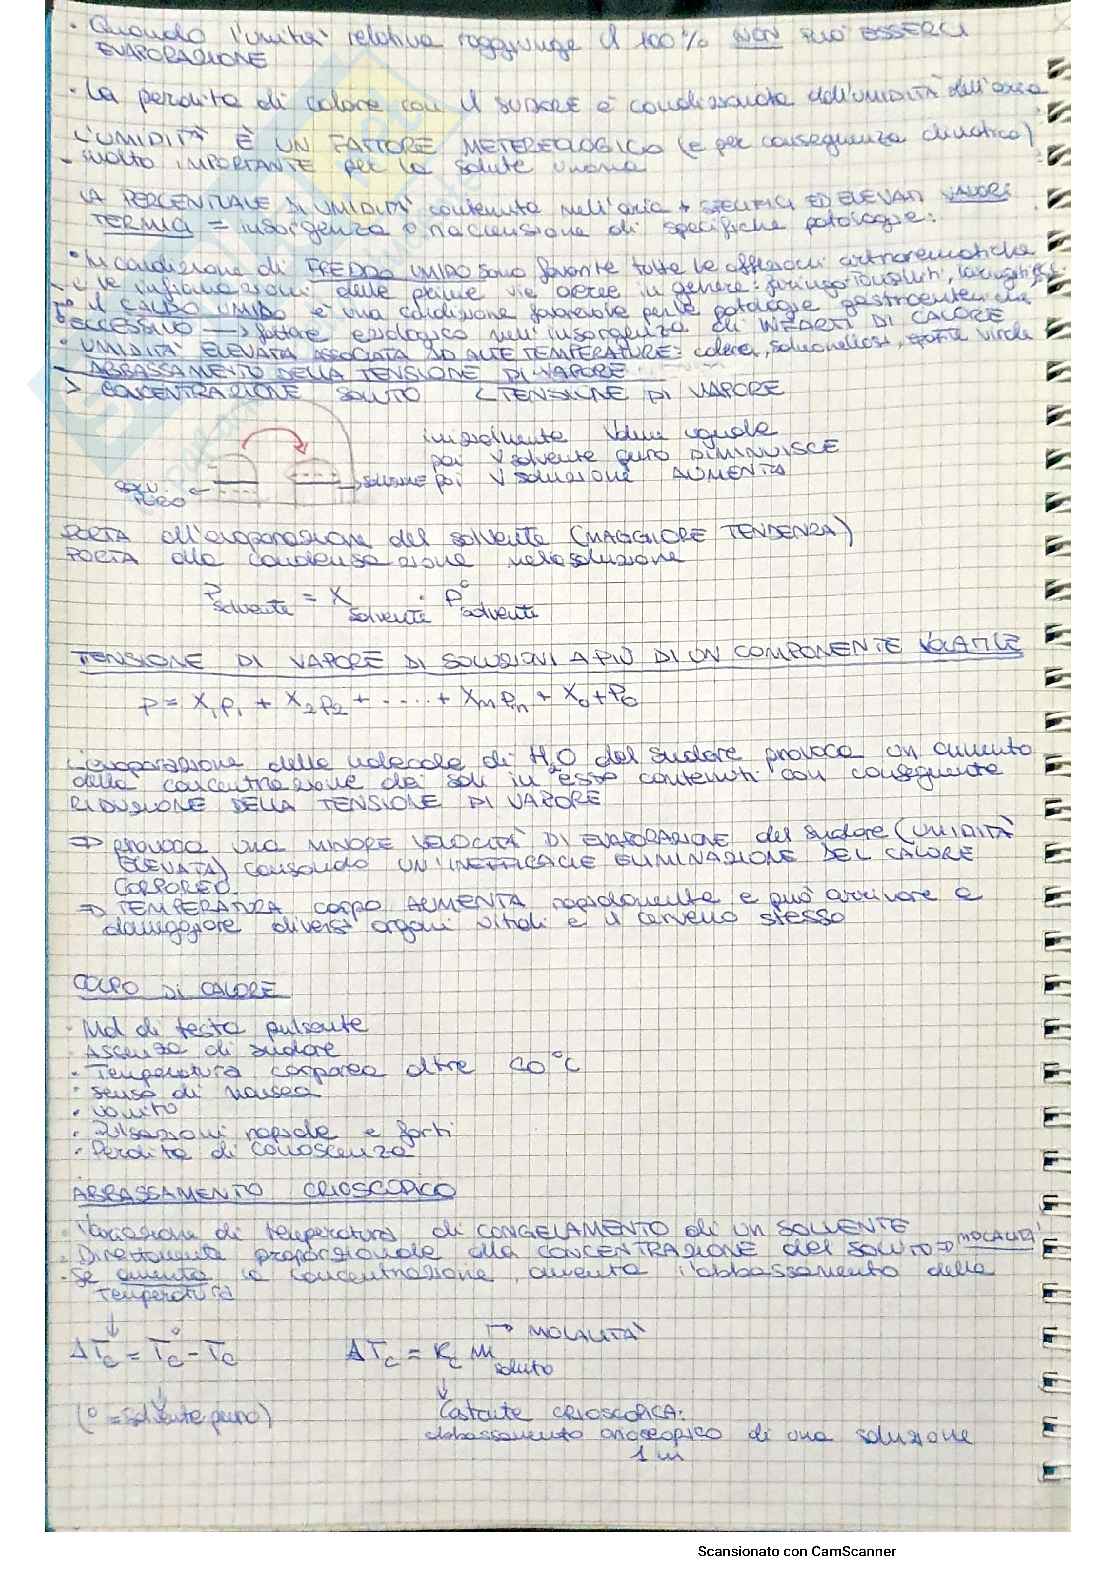 · Quando l'umità relativa raggiunge il 100% NON PUÒ ESSERCI
EVAPORAZIONE
· La perdita di calore con il SUDORE è condizionata dall'UMIDITÀ dell'aria
L'UMIDITÀ È UN FATTORE METEREOLOGICO (e per conseguenza climatico)
molto IMPORTANTE per la salute umana
LA PERCENTUALE DI UMIDITÀ contenuta nell'aria + SPECIFICI ED ELEVATI VALORI
TERMICI = insorgenza o di specifiche patologie:
· In condizione di FREDDO UMIDO sono favorite tutte le affezioni artroreumatiche
e le infiammazioni delle prime vie aeree in genere:
il CALDO UMIDO è una condizione favorevole per le patologie
ECCESSIVO → fattore eziologico nell'insorgenza di INFARTI DI CALORE
· UMIDITÀ ELEVATA ASSOCIATA AD ALTE TEMPERATURE: colera, salmonellosi, epatite virale
ABBASSAMENTO DELLA TENSIONE DI VAPORE
> CONCENTRAZIONE SOLUTO < TENSIONE DI VAPORE
inizialmente Volume uguale
poi V solvente puro DIMINUISCE
poi V soluzione AUMENTA
SOLV. PURO
SOLUZIONE
PORTA all'evaporazione del solvente (MAGGIORE TENDENZA)
PORTA alla condensazione nella soluzione
P solvente = X solvente · P° solvente
TENSIONE DI VAPORE DI SOLUZIONI A PIÙ DI UN COMPONENTE VOLATILE
P = X₁P₁ + X₂P₂ + ..... + XₙPₙ + X₀+P₀
L'evaporazione delle molecole di H₂O del sudore provoca un aumento
della concentrazione dei sali in esso contenuti con conseguente
RIDUZIONE DELLA TENSIONE DI VAPORE
⇒ provoca una MINORE VELOCITÀ DI EVAPORAZIONE del sudore (UMIDITÀ
ELEVATA) causando UN'INEFFICACIE ELIMINAZIONE DEL CALORE
CORPOREO.
⇒ TEMPERATURA corpo AUMENTA rapidamente e può arrivare a
danneggiare diversi organi vitali e il cervello stesso
COLPO DI CALORE
· Mal di testa pulsante
· Assenza di sudore
· Temperatura corporea oltre 40°C
· senso di nausea
· vomito
· Pulsazioni rapide e forti
· Perdita di conoscenza
ABBASSAMENTO CRIOSCOPICO
· Variazione di temperatura di CONGELAMENTO di UN SOLVENTE
· Direttamente proporzionale alla CONCENTRAZIONE del SOLUTO ⇒ MOLALITÀ
· Se aumenta la concentrazione, aumenta l'abbassamento della
temperatura
→ MOLALITÀ
ΔTc = T°c - Tc ΔTc = Kc m soluto
(° = solvente puro)
Costante CRIOSCOPICA:
abbassamento crioscopico di una soluzione
1 m
Scansionato con CamScanner